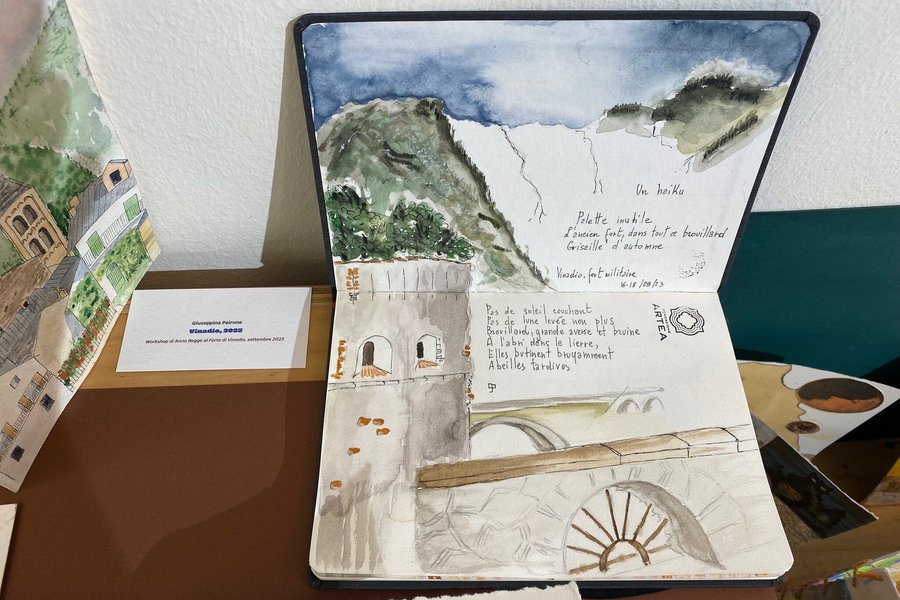 Giuseppina Peirone
Vinadio, 2023
Workshop di Anna Regge al Forte di Vinadio, settembre 2023
Un haïku
Palette inutile
L'ancien fort, dans tout ce brouillard
Grisaille d'automne
Vinadio, fort militaire
16-18 /09/23
Pas de soleil couchant
Pas de lune levée non plus
Brouillard, grande averse et bruine
A l'abri dans le lierre,
Elles butinent bruyamment
Abeilles tardives
ARTEA